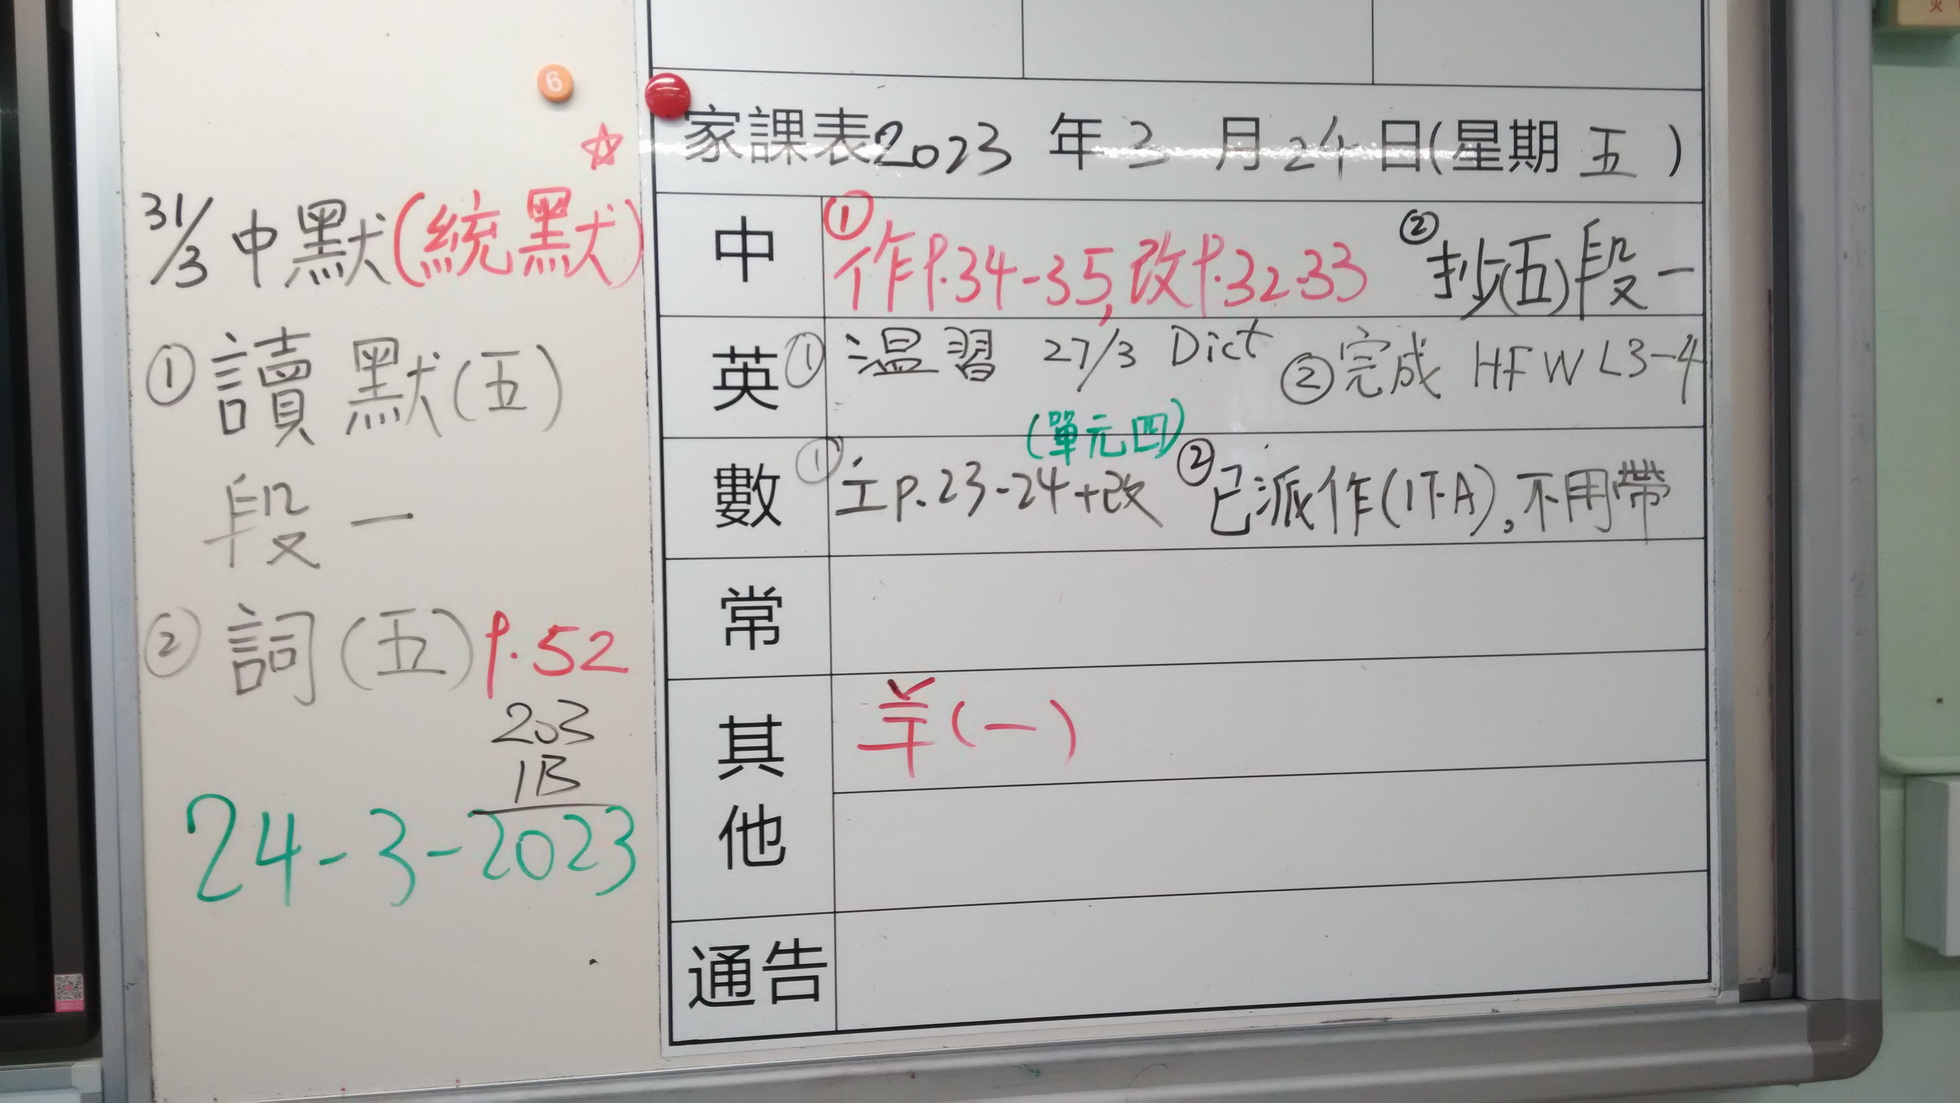 6
☆
31/3 中默(統默)
①讀默(五)
段一
②詞(五)p.52
203
1B
24-3-2023
家課表2023年3月24日(星期五)
中 ①作p.34-35,改p.32-33 ②抄(五)段一
英 ①溫習 27/3 Dict ②完成 HFW L3-4
(單元四)
數 ① p.23-24+改 ②已派作(1下A)。不用帶
常
其他 (一)
通告